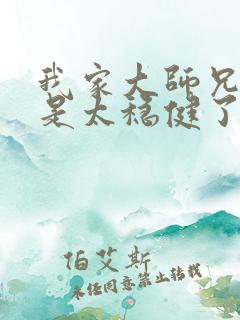 我家大师兄
是太稳健了
伯艾斯
未经同意禁止转载